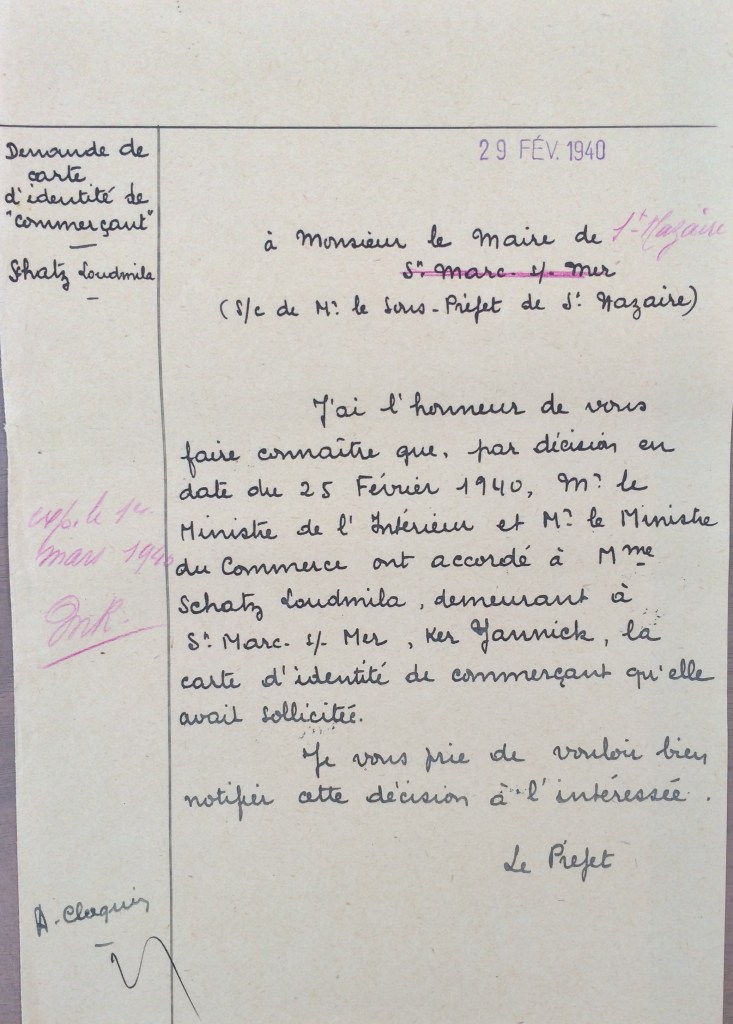 Demande de
carte
d'identité de
"commerçant"
Schatz Loudmila
29 FÉV. 1940
à Monsieur le Maire de St-Nazaire
St Marc. s/. Mer
(S/c de Mr le Sous-Préfet de St Nazaire)
J'ai l'honneur de vous
faire connaître que, par décision en
date du 25 Février 1940, Mr le
Ministre de l'Intérieur et Mr le Ministre
du Commerce ont accordé à Mme
Schatz Loudmila, demeurant à
St Marc. s/. Mer, Ker Yannick, la
carte d'identité de commerçant qu'elle
avait sollicitée.
Je vous prie de vouloir bien
notifier cette décision à l'intéressée.
Le Préfet
exp. le 1er
mars 1940
A. Cloquin